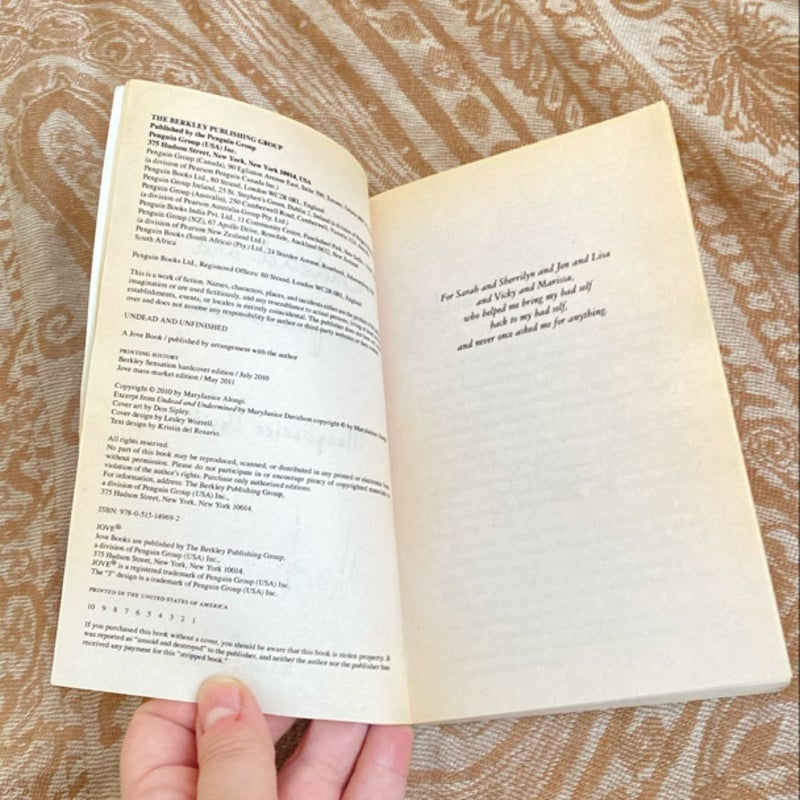 THE BERKLEY PUBLISHING GROUP
Published by the Penguin Group
Penguin Group (USA) Inc.
375 Hudson Street, New York, New York 10014, USA
Penguin Group (Canada), 90 Eglinton Avenue East, Suite 700, Toronto,
(a division of Pearson Penguin Canada Inc.)
Penguin Books Ltd., 80 Strand, London WC2R 0RL, England
Penguin Group Ireland, 25 St. Stephen's Green, Dublin 2, Ireland (a division of
Penguin Group (Australia), 250 Camberwell Road, Camberwell, Victoria
(a division of Pearson Australia Group Pty. Ltd.)
Penguin Books India Pvt. Ltd., 11 Community Centre, Panchsheel Park,
Penguin Group (NZ), 67 Apollo Drive, Rosedale, Auckland 0632, New Zealand
(a division of Pearson New Zealand Ltd.)
Penguin Books (South Africa) (Pty.) Ltd., 24 Sturdee Avenue, Rosebank,
South Africa
Penguin Books Ltd., Registered Offices: 80 Strand, London WC2R 0RL, England
This is a work of fiction. Names, characters, places, and incidents either are the product of the
imagination or are used fictitiously, and any resemblance to actual persons, living or dead,
establishments, events, or locales is entirely coincidental. The publisher does not have any
over and does not assume any responsibility for author or third-party websites or their
UNDEAD AND UNFINISHED
A Jove Book / published by arrangement with the author
PRINTING HISTORY
Berkley Sensation hardcover edition / July 2010
Jove mass-market edition / May 2011
Copyright © 2010 by MaryJanice Alongi.
Excerpt from Undead and Undermined by MaryJanice Davidson copyright © by MaryJanice Alongi.
Cover art by Don Sipley.
Cover design by Lesley Worrell.
Text design by Kristin del Rosario.
All rights reserved.
No part of this book may be reproduced, scanned, or distributed in any printed or electronic form
without permission. Please do not participate in or encourage piracy of copyrighted materials in
violation of the author's rights. Purchase only authorized editions.
For information, address: The Berkley Publishing Group,
a division of Penguin Group (USA) Inc.,
375 Hudson Street, New York, New York 10014.
ISBN: 978-0-515-14969-2
JOVE®
Jove Books are published by The Berkley Publishing Group,
a division of Penguin Group (USA) Inc.,
375 Hudson Street, New York, New York 10014.
JOVE® is a registered trademark of Penguin Group (USA) Inc.
The "J" design is a trademark of Penguin Group (USA) Inc.
PRINTED IN THE UNITED STATES OF AMERICA
10 9 8 7 6 5 4 3 2 1
If you purchased this book without a cover, you should be aware that this book is stolen property. It
was reported as "unsold and destroyed" to the publisher, and neither the author nor the publisher has
received any payment for this "stripped book."
For Sarah and Sherrilyn and Jen and Lisa
and Vicky and Marissa,
who helped me bring my bad self
back to my bad self,
and never once asked me for anything.